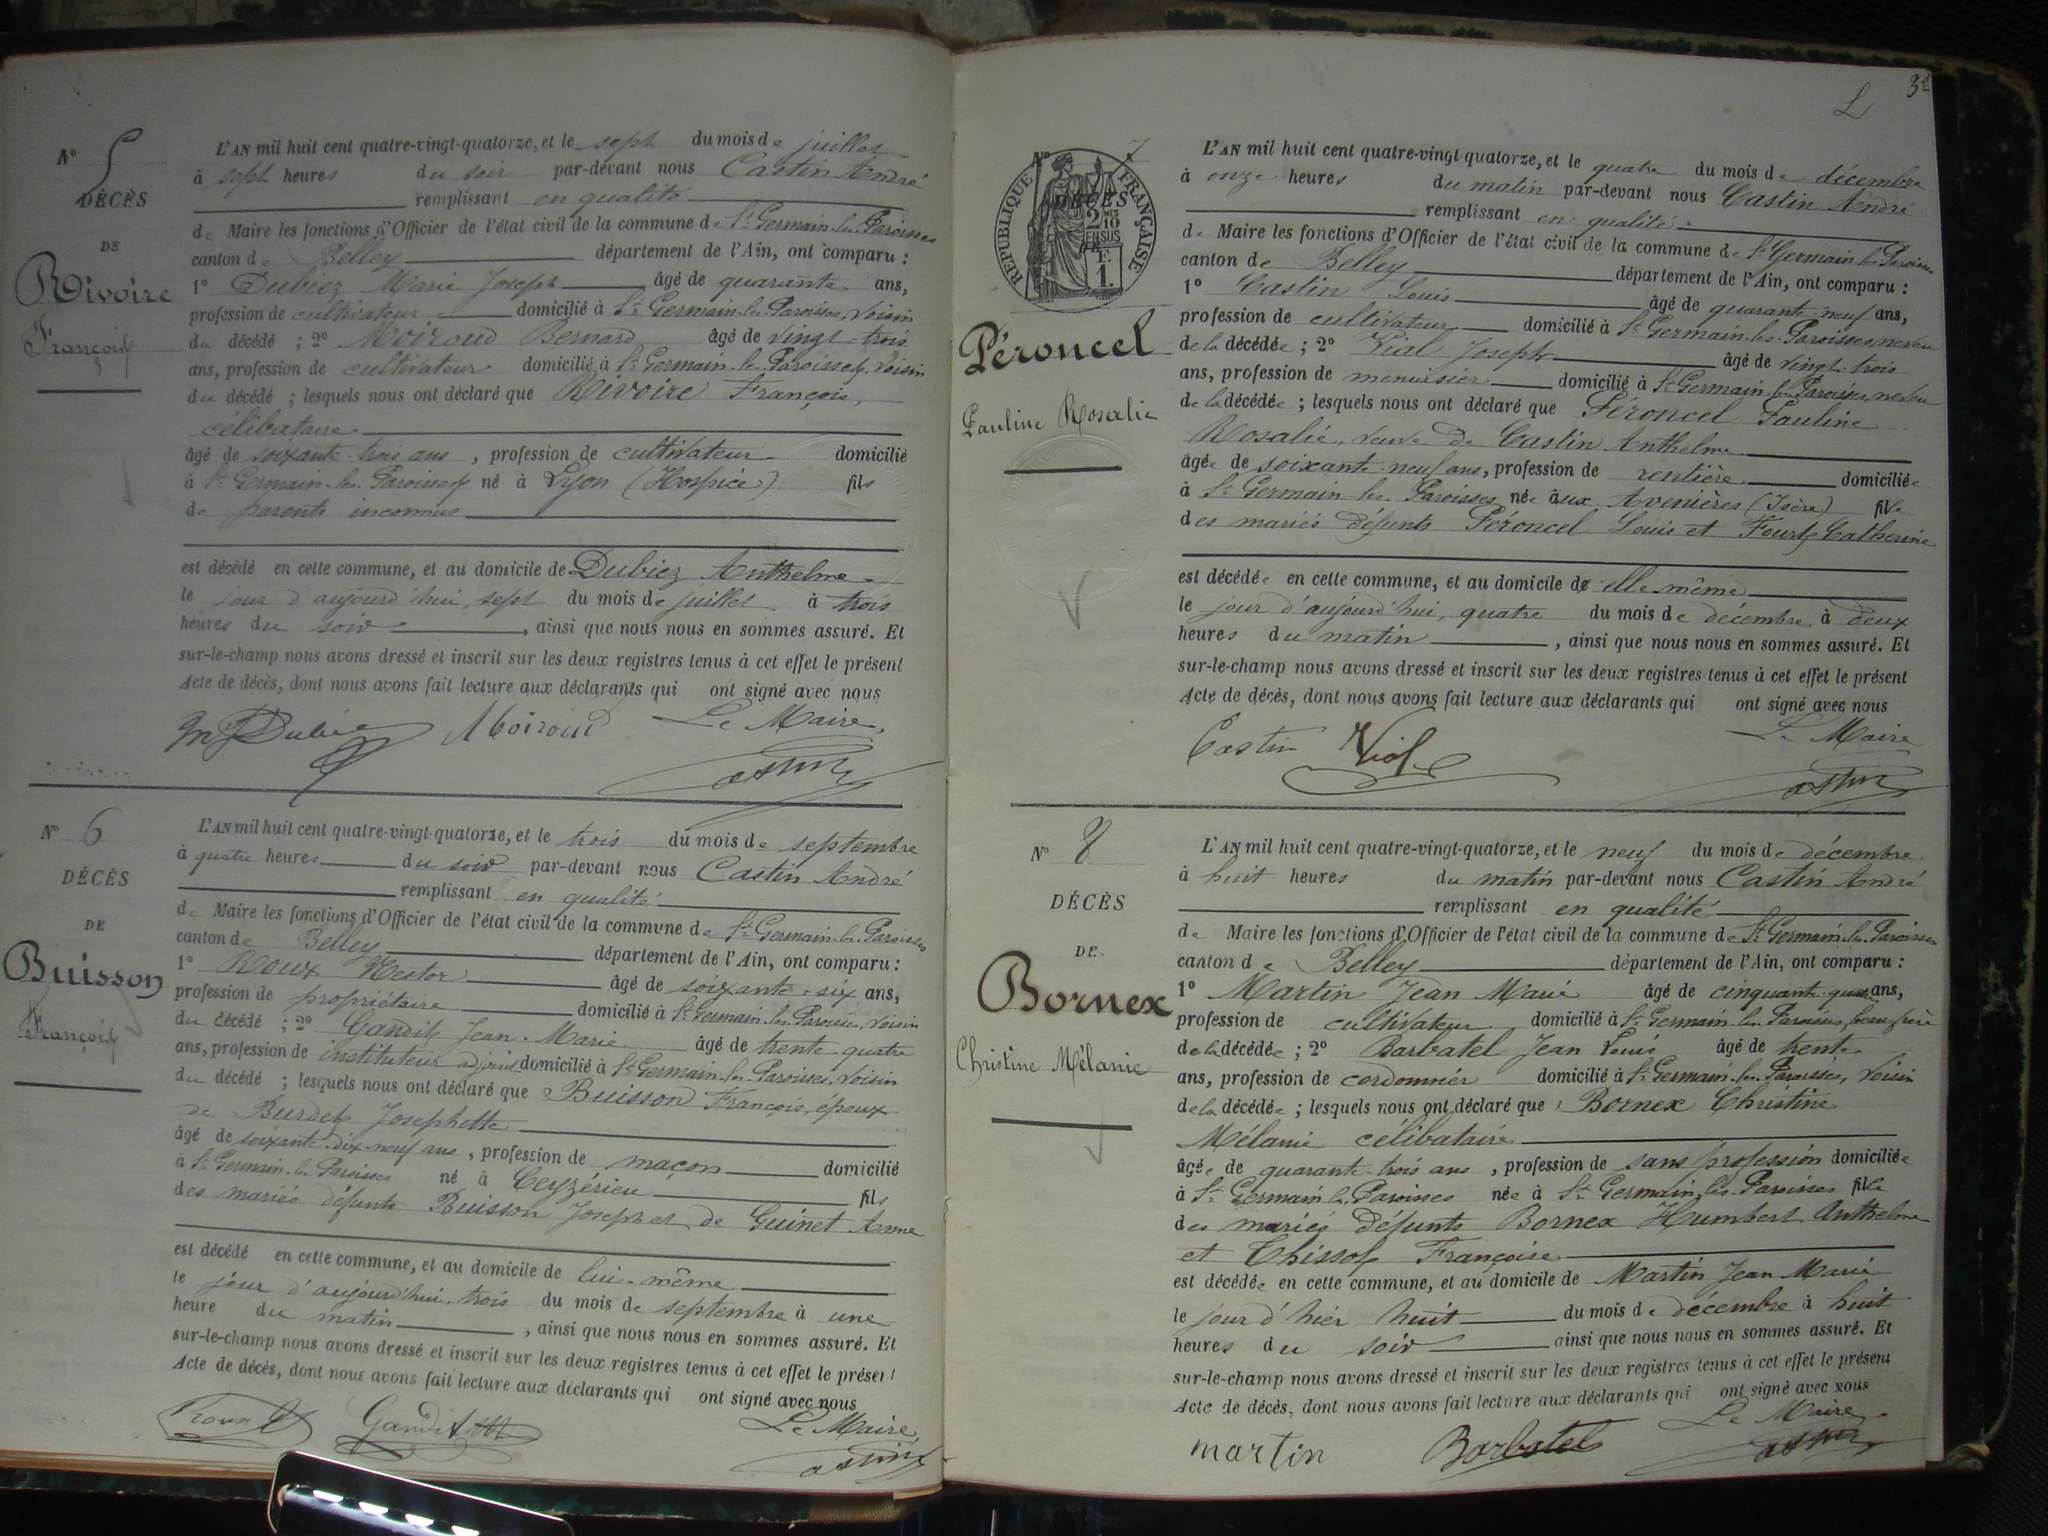 Nº 5
DÉCÈS
DE
Rivoire
François
L'AN mil huit cent quatre-vingt-quatorze, et le sept du mois de juillet
à sept heures du soir par-devant nous Castin André
remplissant en qualité
de Maire les fonctions d'Officier de l'état civil de la commune de St Germain-les-Paroisses
canton de Belley département de l'Ain, ont comparu :
1º Dubiez Marie Joseph âgé de quarante ans,
profession de cultivateur domicilié à St Germain-les-Paroisses, voisin
du décédé ; 2º Moiroud Bernard âgé de vingt-trois
ans, profession de cultivateur domicilié à St Germain-les-Paroisses, voisin
du décédé ; lesquels nous ont déclaré que Rivoire François,
célibataire
âgé de soixante-trois ans, profession de cultivateur domicilié
à St Germain-les-Paroisses né à Lyon (Hospice) fils
de parents inconnus
est décédé en cette commune, et au domicile de Dubiez Anthelme
le jour d'aujourd'hui, sept du mois de juillet à trois
heures du soir, ainsi que nous nous en sommes assuré. Et
sur-le-champ nous avons dressé et inscrit sur les deux registres tenus à cet effet le présent
Acte de décès, dont nous avons fait lecture aux déclarants qui ont signé avec nous
Le Maire,
Dubiez Moiroud
Nº 6
DÉCÈS
DE
Buisson
François
L'AN mil huit cent quatre-vingt-quatorze, et le trois du mois de septembre
à quatre heures du soir par-devant nous Castin André
remplissant en qualité
de Maire les fonctions d'Officier de l'état civil de la commune de St Germain-les-Paroisses
canton de Belley département de l'Ain, ont comparu :
1º Roux Nestor âgé de soixante-six ans,
profession de propriétaire domicilié à St Germain-les-Paroisses, voisin
du décédé ; 2º Gandit Jean-Marie âgé de trente-quatre
ans, profession de instituteur adjoint domicilié à St Germain-les-Paroisses, voisin
du décédé ; lesquels nous ont déclaré que Buisson François, époux
de Burdet Josephette
âgé de soixante-dix-neuf ans, profession de maçon domicilié
à St Germain-les-Paroisses né à Ceyzérieu fils
des mariés défunts Buisson Joseph et de Guinet Anne
est décédé en cette commune, et au domicile de lui-même
le jour d'aujourd'hui, trois du mois de septembre à une
heure du matin, ainsi que nous nous en sommes assuré. Et
sur-le-champ nous avons dressé et inscrit sur les deux registres tenus à cet effet le présent
Acte de décès, dont nous avons fait lecture aux déclarants qui ont signé avec nous
Le Maire,
Gandit
L 32
Nº 7
RÉPUBLIQUE FRANÇAISE
DÉCÈS
2 mes 10
EN SUS
1 F.
Péroncel
Pauline Rosalie
L'AN mil huit cent quatre-vingt-quatorze, et le quatre du mois de décembre
à onze heures du matin par-devant nous Castin André
remplissant en qualité
de Maire les fonctions d'Officier de l'état civil de la commune de St Germain-les-Paroisses
canton de Belley département de l'Ain, ont comparu :
1º Castin Louis âgé de quarante-neuf ans,
profession de cultivateur domicilié à St Germain-les-Paroisses, neveu
de la décédée ; 2º Vial Joseph âgé de vingt-trois
ans, profession de menuisier domicilié à St Germain-les-Paroisses, neveu
de la décédée ; lesquels nous ont déclaré que Péroncel Pauline
Rosalie, veuve de Castin Anthelme
âgée de soixante-neuf ans, profession de rentière domiciliée
à St Germain-les-Paroisses née aux Avenières (Isère) fille
des mariés défunts Péroncel Louis et Catherine
est décédée en cette commune, et au domicile d'elle-même
le jour d'aujourd'hui, quatre du mois de décembre à deux
heures du matin, ainsi que nous nous en sommes assuré. Et
sur-le-champ nous avons dressé et inscrit sur les deux registres tenus à cet effet le présent
Acte de décès, dont nous avons fait lecture aux déclarants qui ont signé avec nous
Le Maire
Castin Vial
Nº 8
DÉCÈS
DE
Bornex
Christine Mélanie
L'AN mil huit cent quatre-vingt-quatorze, et le neuf du mois de décembre
à huit heures du matin par-devant nous Castin André
remplissant en qualité
de Maire les fonctions d'Officier de l'état civil de la commune de St Germain-les-Paroisses
canton de Belley département de l'Ain, ont comparu :
1º Martin Jean Marie âgé de cinquante-quatre ans,
profession de cultivateur domicilié à St Germain-les-Paroisses, beau-frère
de la décédée ; 2º Barbatel Jean Louis âgé de trente
ans, profession de cordonnier domicilié à St Germain-les-Paroisses, voisin
de la décédée ; lesquels nous ont déclaré que Bornex Christine
Mélanie célibataire
âgée de quarante-trois ans, profession de sans profession domiciliée
à St Germain-les-Paroisses née à St Germain-les-Paroisses fille
des mariés défunts Bornex Humbert Anthelme
et Françoise
est décédée en cette commune, et au domicile de Martin Jean Marie
le jour d'hier huit du mois de décembre à huit
heures du soir ainsi que nous nous en sommes assuré. Et
sur-le-champ nous avons dressé et inscrit sur les deux registres tenus à cet effet le présent
Acte de décès, dont nous avons fait lecture aux déclarants qui ont signé avec nous
Le Maire
martin Barbatel